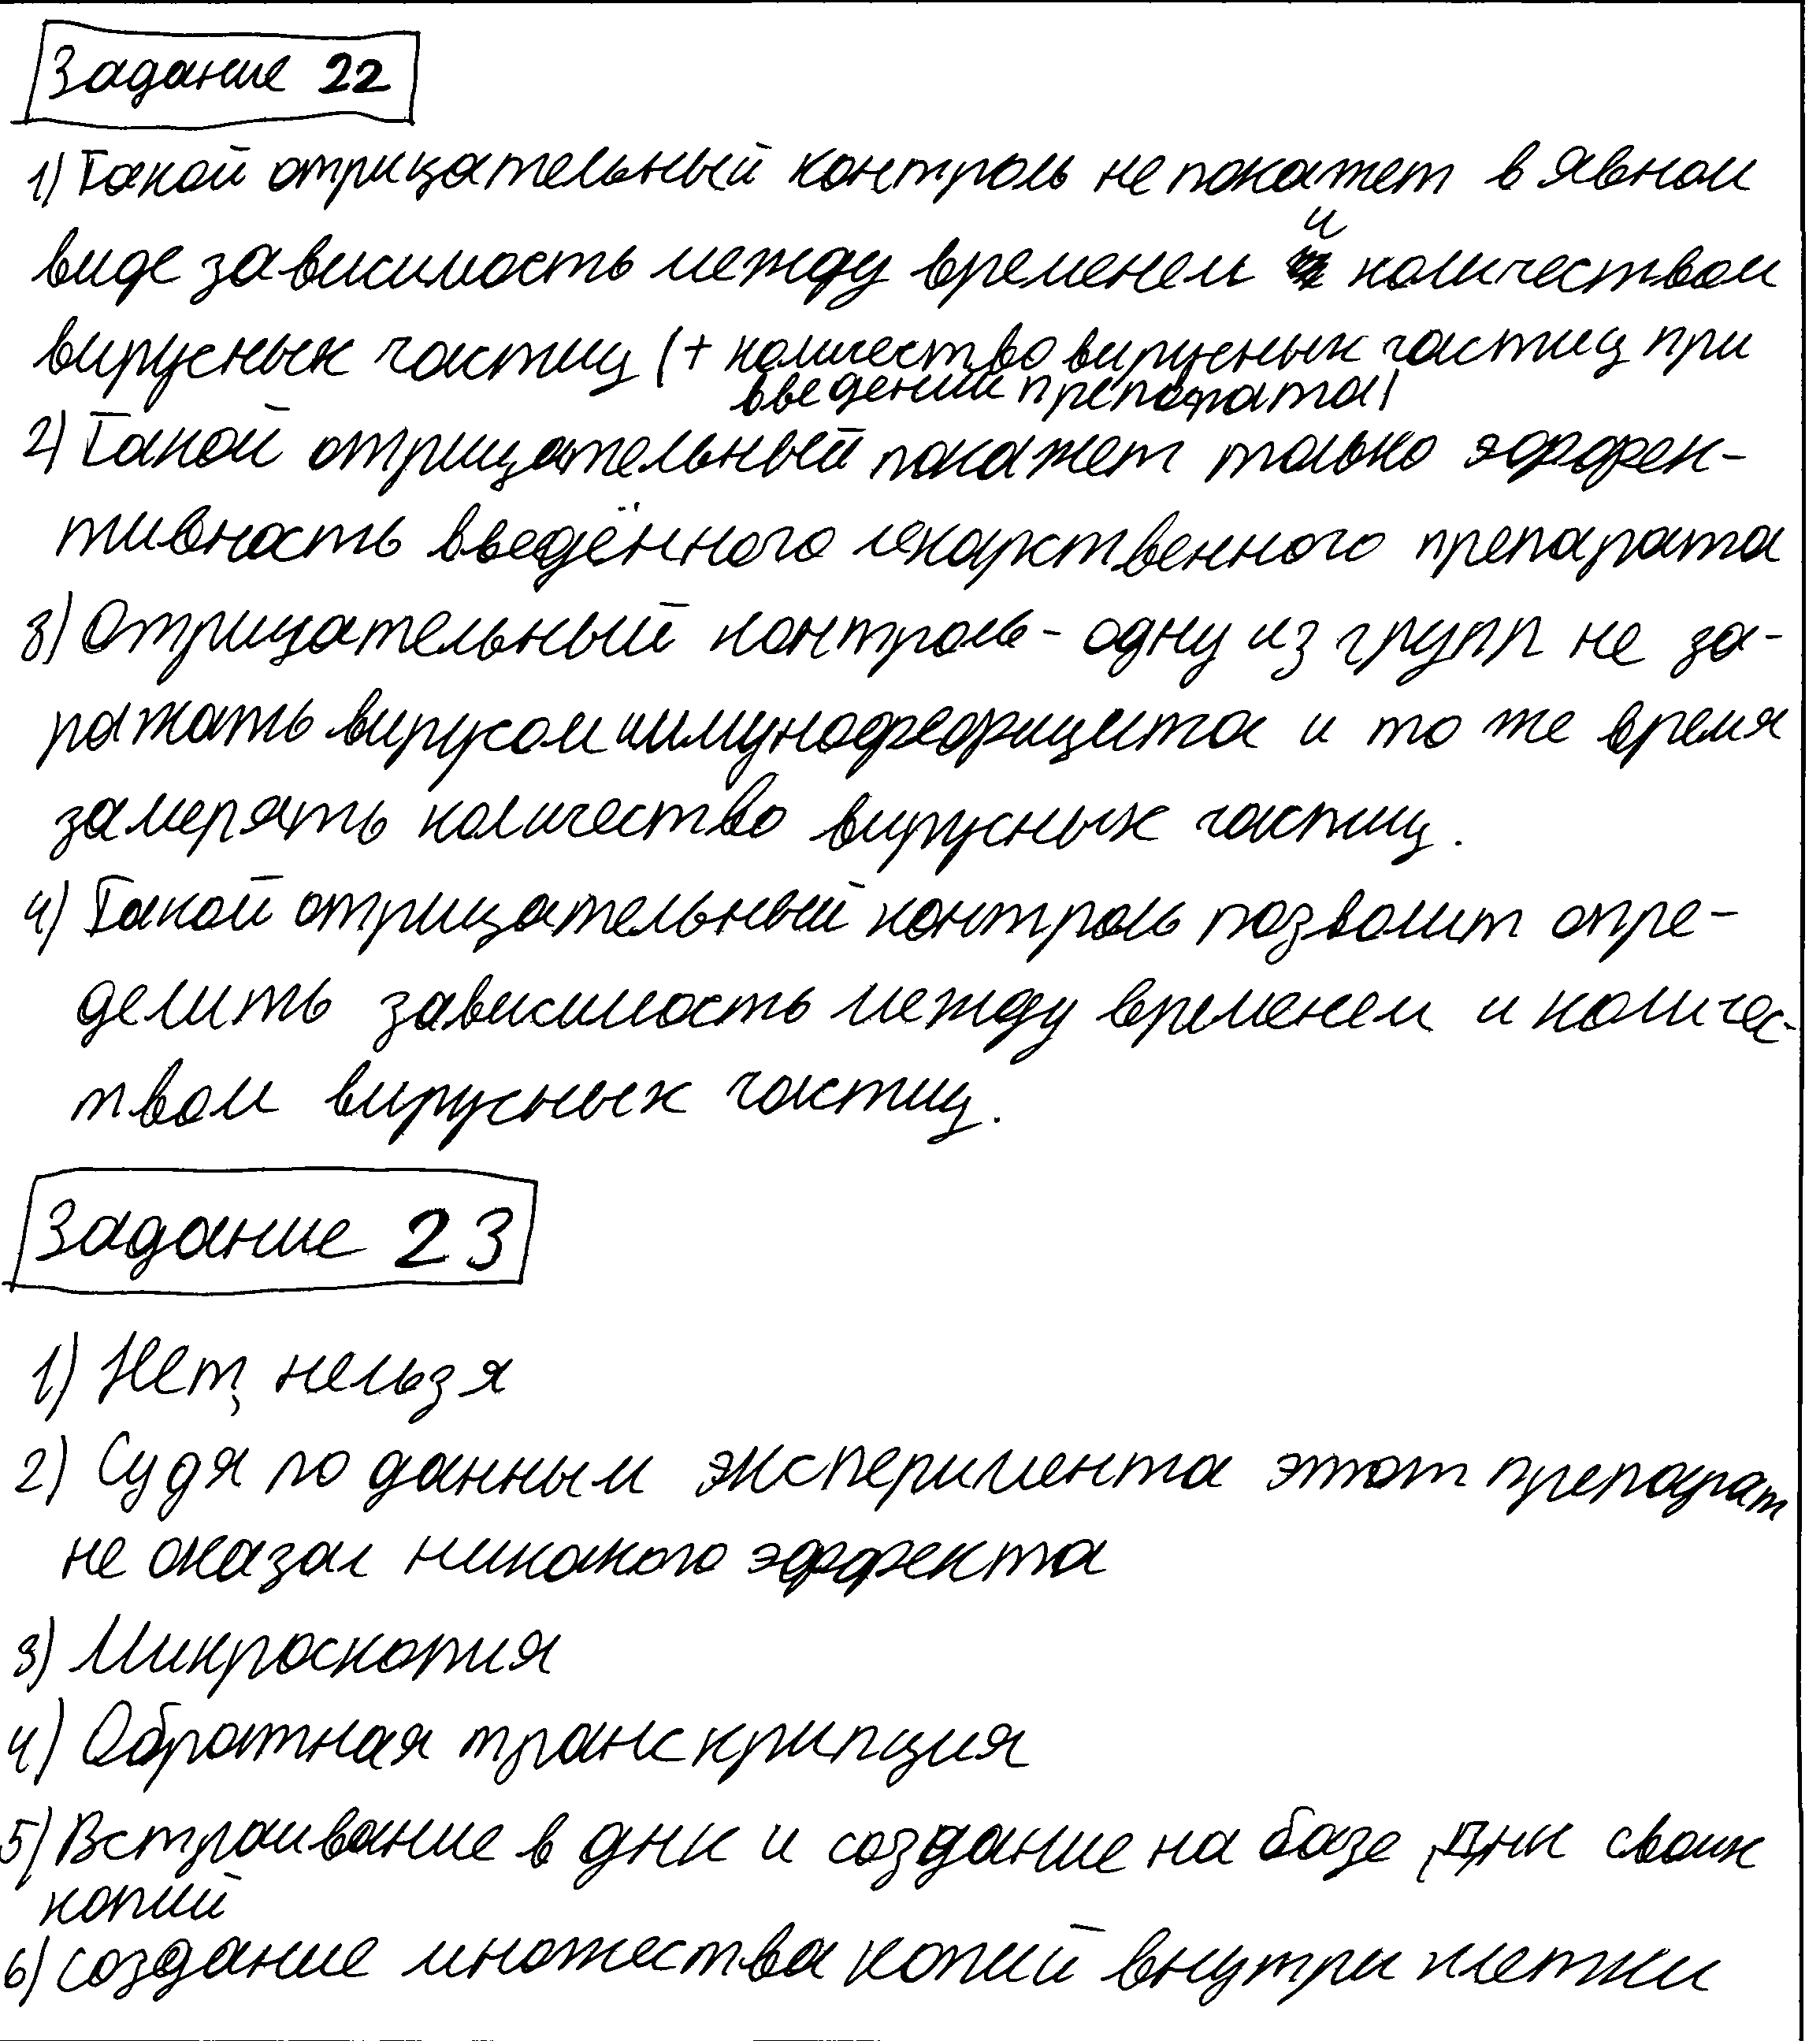 Задание 22
1) Такой отрицательный контроль не покажет в явном
виде зависимость между временем и количеством
вирусных частиц (+ количество вирусных частиц при
введении препарата)
2) Такой отрицательный покажет только эффек-
тивность введённого лекарственного препарата
3) Отрицательный контроль - одну из групп не за-
ражать вирусом иммунофефицита и то же время
замерять количество вирусных частиц.
4) Такой отрицательный контроль позволит опре-
делить зависимость между временем и количес-
твом вирусных частиц.
Задание 23
1) Нет, нельзя
2) Судя по данным эксперимента этот препарат
не оказал никакого эффекта
3) Микроскопия
4) Обратная транскрипция
5) Встраивание в днк и создание на базе днк своих
копий
6) создание множества копий внутри клетки